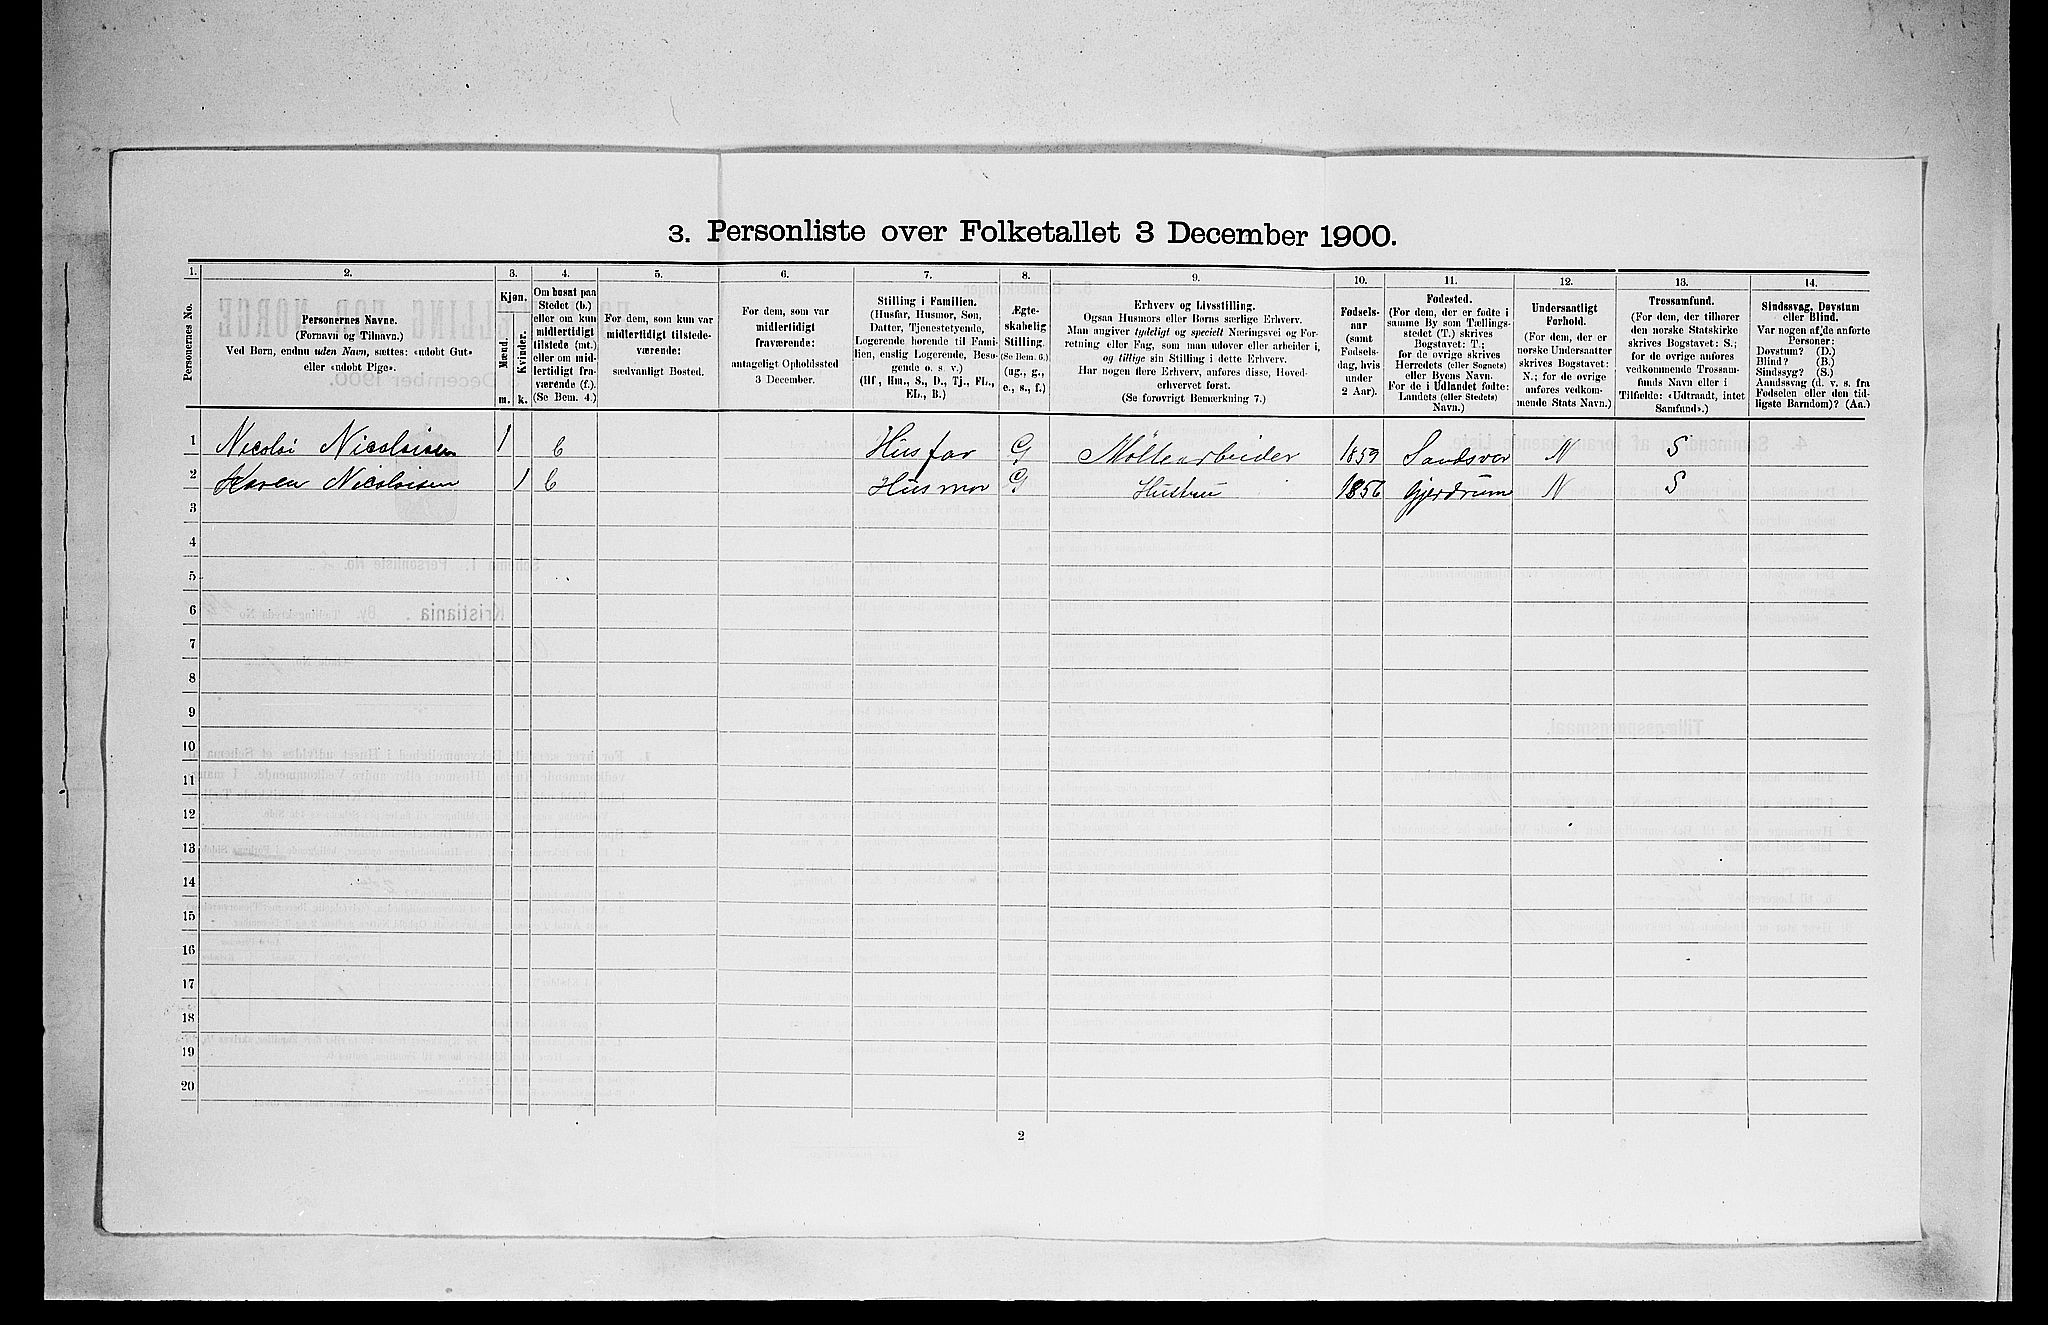 3. Personliste over Folketallet 3 December 1900.
1.
Personernes No.
2.
Personernes Navne.
(Fornavn og Tilnavn.)
Ved Børn, endnu uden Navn, sættes: «udøbt Gut»
eller «udøbt Pige».
3.
Kjøn.
Mænd.
m.
Kvinder.
k.
4.
Om bosat paa
Stedet (b.)
eller om kun
midlertidigt
tilstede (mt.)
eller om mid-
lertidigt fra-
værende (f.).
(Se Bem. 4.)
5.
For dem, som kun var
midlertidigt tilstede-
værende:
sædvanligt Bosted.
6.
For dem, som var
midlertidigt
fraværende:
antageligt Opholdssted
3 December.
7.
Stilling i Familien.
(Husfar, Husmor, Søn,
Datter, Tjenestetyende,
Logerende hørende til Fami-
lien, enslig Logerende, Besø-
gende o. s. v.)
(Hf, Hm., S., D., Tj., FL.,
EL., B.)
8.
Ægte-
skabelig
Stilling.
(Se Bem. 6.)
(ug., g.,
e., s., f.)
9.
Erhverv og Livsstilling.
Ogsaa Husmors eller Børns særlige Erhverv.
Man angiver tydeligt og specielt Næringsvei og For-
retning eller Fag, som man udøver eller arbeider i,
og tillige sin Stilling i dette Erhverv.
Har nogen flere Erhverv, anføres disse, Hoved-
erhvervet først.
(Se forøvrigt Bemærkning 7.)
10.
Fødsels-
aar
(samt
Fødsels-
dag, hvis
under
2 Aar).
11.
Fødested.
(For dem, der er fødte i
samme By som Tællings-
stedet (T.) skrives
Bogstavet: T.;
for de øvrige skrives
Herredets (eller Sognets)
eller Byens Navn.
For de i Udlandet fødte:
Landets (eller Stedets)
Navn.)
12.
Undersaatligt
Forhold.
(For dem, der er
norske Undersaatter
skrives Bogstavet:
N.; for de øvrige
anføres vedkom-
mende Stats Navn.)
13.
Trossamfund.
(For dem, der tilhører
den norske Statskirke
skrives Bogstavet: S.;
for de øvrige anføres
vedkommende Trossam-
funds Navn eller i
Tilfælde: «Udtraadt, intet
Samfund».)
14.
Sindssvag, Døvstum
eller Blind.
Var nogen af de anførte
Personer:
Døvstum? (D.)
Blind? (B.)
Sindssyg? (S.)
Aandssvag (d. v. s. fra
Fødselen eller den tid-
ligste Barndom)? (Aa.)
1 Nicolai Nicolaisen 1 b Husfar G Møllearbeider 1859 Sandsver N S
2 Karen Nicolaisen 1 b Husmor G Hustru 1856 Gjerdrum N S
3
4
5
6
7
8
9
10
11
12
13
14
15
16
17
18
19
20
2